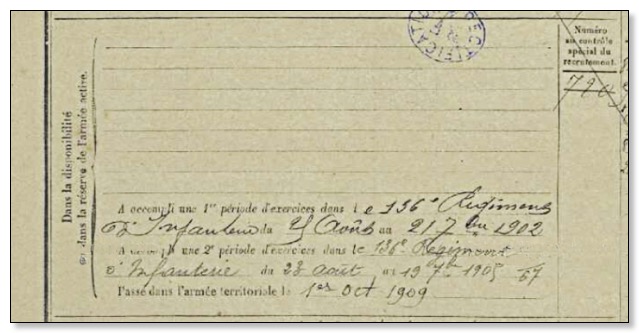 RECTIFICATION
Numéro
au contrôle
spécial du
recrutement.
790
Dans la disponibilité
ou dans la réserve de l'armée active.
A accompli une 1re période d'exercices dans le 136e Régiment
d'Infanterie du 25 Août au 21 7bre 1902
A accompli une 2e période d'exercices dans le 136e Régiment
d'Infanterie du 23 août au 19 7bre 1905
Passé dans l'armée territoriale le 1er Oct 1909